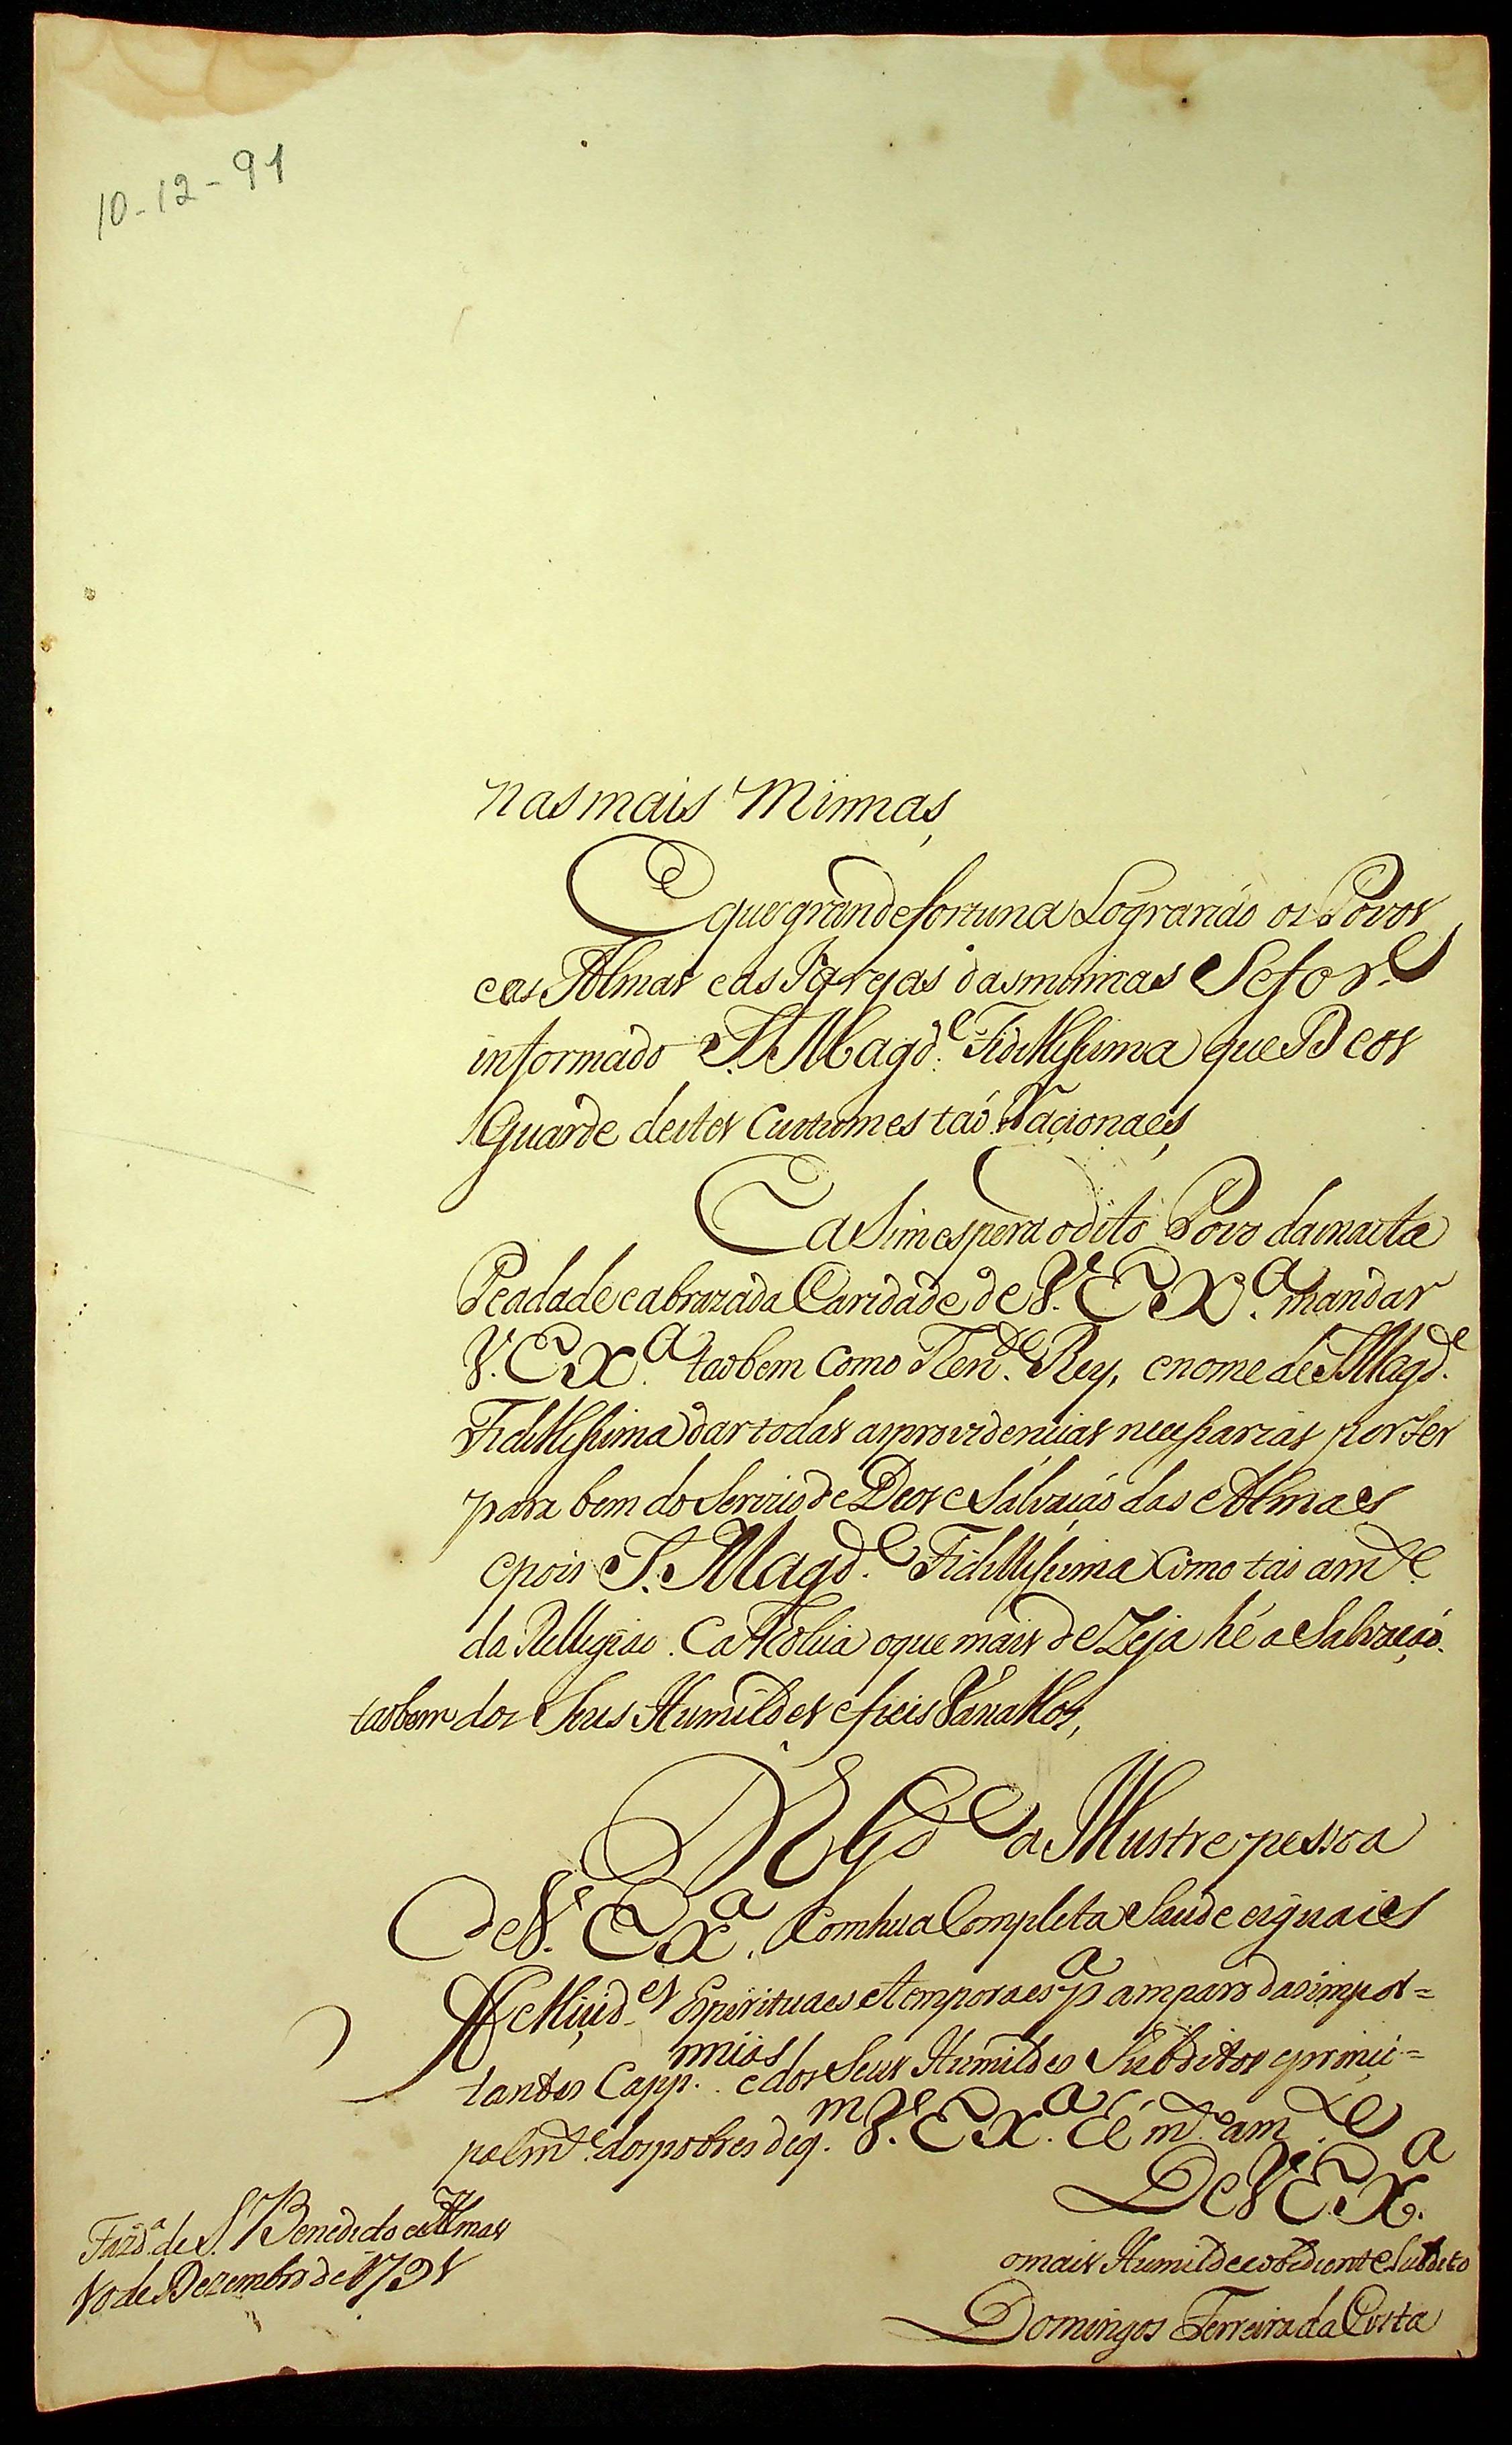 10-12-91
nas mais Minnas,
E que grande fortuna Lograriáo os Povos
e as Almas e as Igrejas das minnas Se for.
informado S. Magd.e Fidellissima que Deos
Guarde destes Custumes táo Nacionaes,
E asim espera o dito Povo da mæta
Peadade e abrazada Caridade de V. EX.a mandar
V. EX.a taobem como Ten.e Rey, e nome de S. Magd.e
Fidellissima dar todas as providencias necessarias por ser
para bem do Servizo de Deos e Salvaçáo das Almaes
e pois S. Magd.e Fidellissima como táo am.te
da Relligiáo Catholica o que mais dezeja hé a Salvaçáo
taobem dos Seus Humildes e fieis Vasallos,
D.s G.de a Illustre pessoa
de V. EX.a Com hua Completa Saude e iguaies
Fellicid.es Espirituaes e temporaes p.a amparo das impor=
tantes Capp.nnias e dos Seus Humildes Subditos e princi=
palm.te dos pobres de q.m V. EX.a É m.to am.te
De V. EX.a
o mais Humilde e obdiente Subdito
Domingos Ferreira da Costa
Fazd.a de S. Benedicto e Almas
10 de Dezembro de 1791